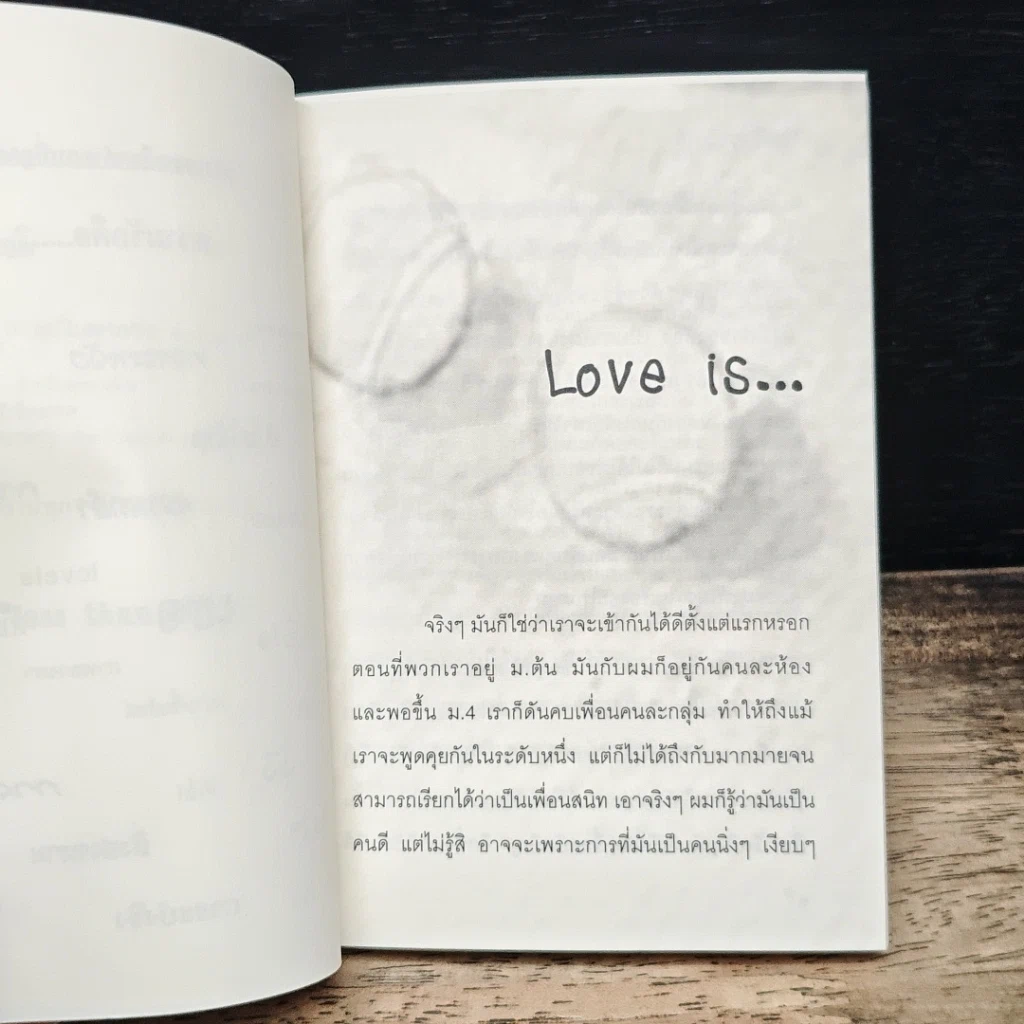 Love is...
จริงๆ มันก็ใช่ว่าเราจะเข้ากันได้ดีตั้งแต่แรกหรอก
ตอนที่พวกเราอยู่ ม.ต้น มันกับผมก็อยู่กันคนละห้อง
และพอขึ้น ม.4 เราก็ดันคบเพื่อนคนละกลุ่ม ทำให้ถึงแม้
เราจะพูดคุยกันในระดับหนึ่ง แต่ก็ไม่ได้ถึงกับมากมายจน
สามารถเรียกได้ว่าเป็นเพื่อนสนิท เอาจริงๆ ผมก็รู้ว่ามันเป็น
คนดี แต่ไม่รู้สิ อาจจะเพราะการที่มันเป็นคนนิ่งๆ เงียบๆ